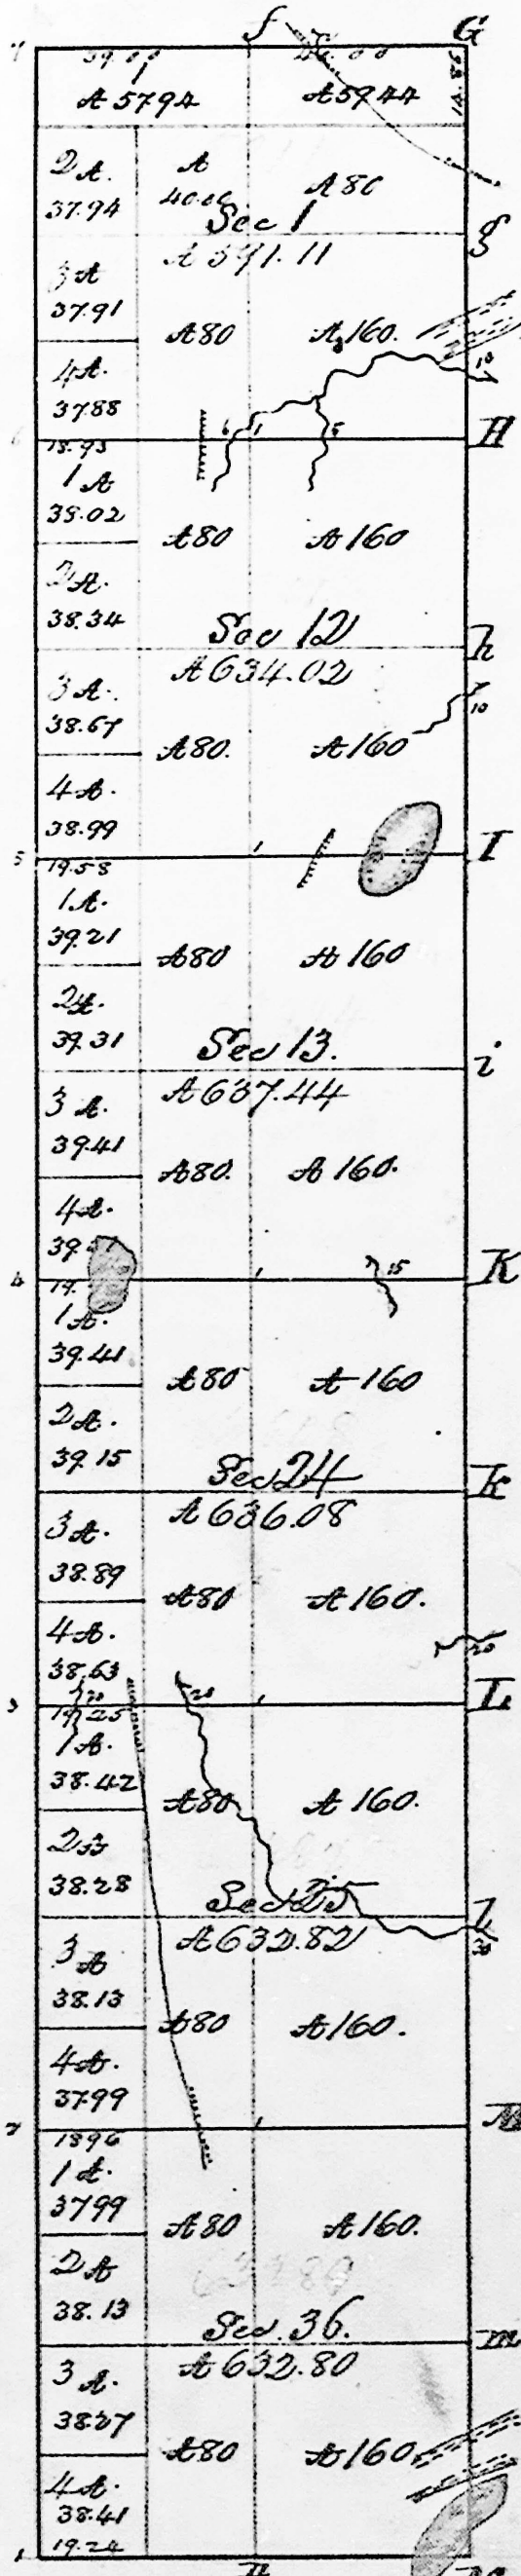 f G
7 39.00
A 5794 A 5944
14.86
2 A. A A 80
37.94
Sec 1 g
A 591.11
3 A
37.91 A 80 A 160.
4 A.
37.88 10
6 18.93 6 1 5 H
1 A
38.02 A 80 A 160
2 A.
38.34 Sec 12 h
A 634.02
3 A.
38.67 A 80. A 160 10
4 A.
38.99
5 19.58 I
1 A.
39.21 A 80 A 160
2 A.
39.31 Sec 13. i
A 637.44
3 A.
39.41 A 80. A 160.
4 A.
4 19. 15 K
1 A.
39.41 A 80 A 160
2 A.
39.15 Sec 24 k
A 636.08
3 A.
38.89 A 80 A 160.
4 A.
38.63 20
3 19.25 20 L
1 A.
38.42 A 80 A 160.
2
38.28 Sec 25 l
A 632.82 30
3 A
38.13 A 80 A 160.
4 A.
37.99
2 1896 M
1 A.
3799 A 80 A 160.
2 A
38.13 Sec. 36. m
A 632.80
3 A.
38.27 A 80 A 160
4 A.
38.41
1 19.24 n